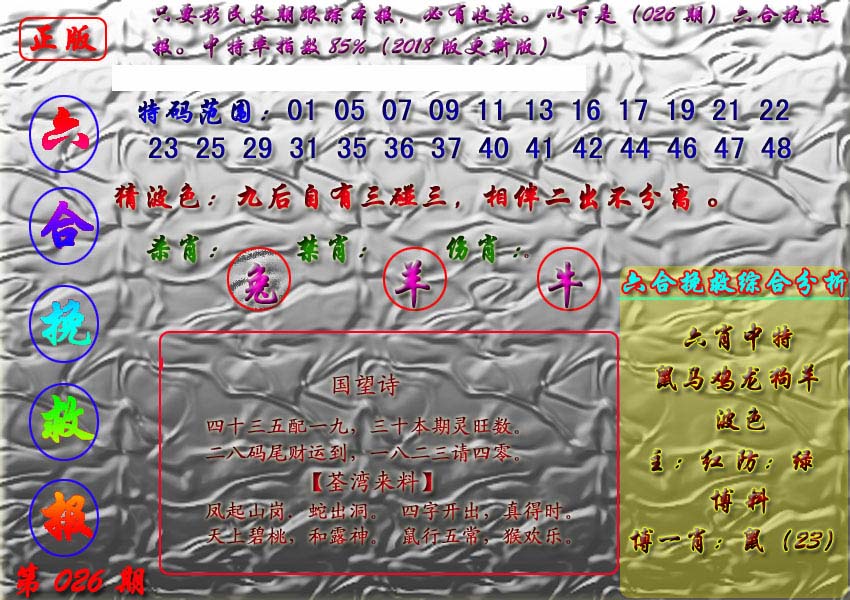 正版
只要彩民长期跟踪本报，必有收获。以下是（026期）六合挽救
报。中特率指数85%（2018版更新版）
六合挽救报
第026期
特码范围：01 05 07 09 11 13 16 17 19 21 22
23 25 29 31 35 36 37 40 41 42 44 46 47 48
猜波色：九后自有三碰三，相伴二出不分离。
杀肖：兔 禁肖：羊 伤肖：牛
国望诗
四十三五配一九，三十本期灵旺数。
二八码尾财运到，一八二三请四零。
【荃湾来料】
凤起山岗．蛇出洞。 四字开出，真得时。
天上碧桃，和露神。 鼠行五常，猴欢乐。
六合挽救综合分析
六肖中特
鼠马鸡龙狗羊
波色
主：红防：绿
博料
博一肖：鼠（23）